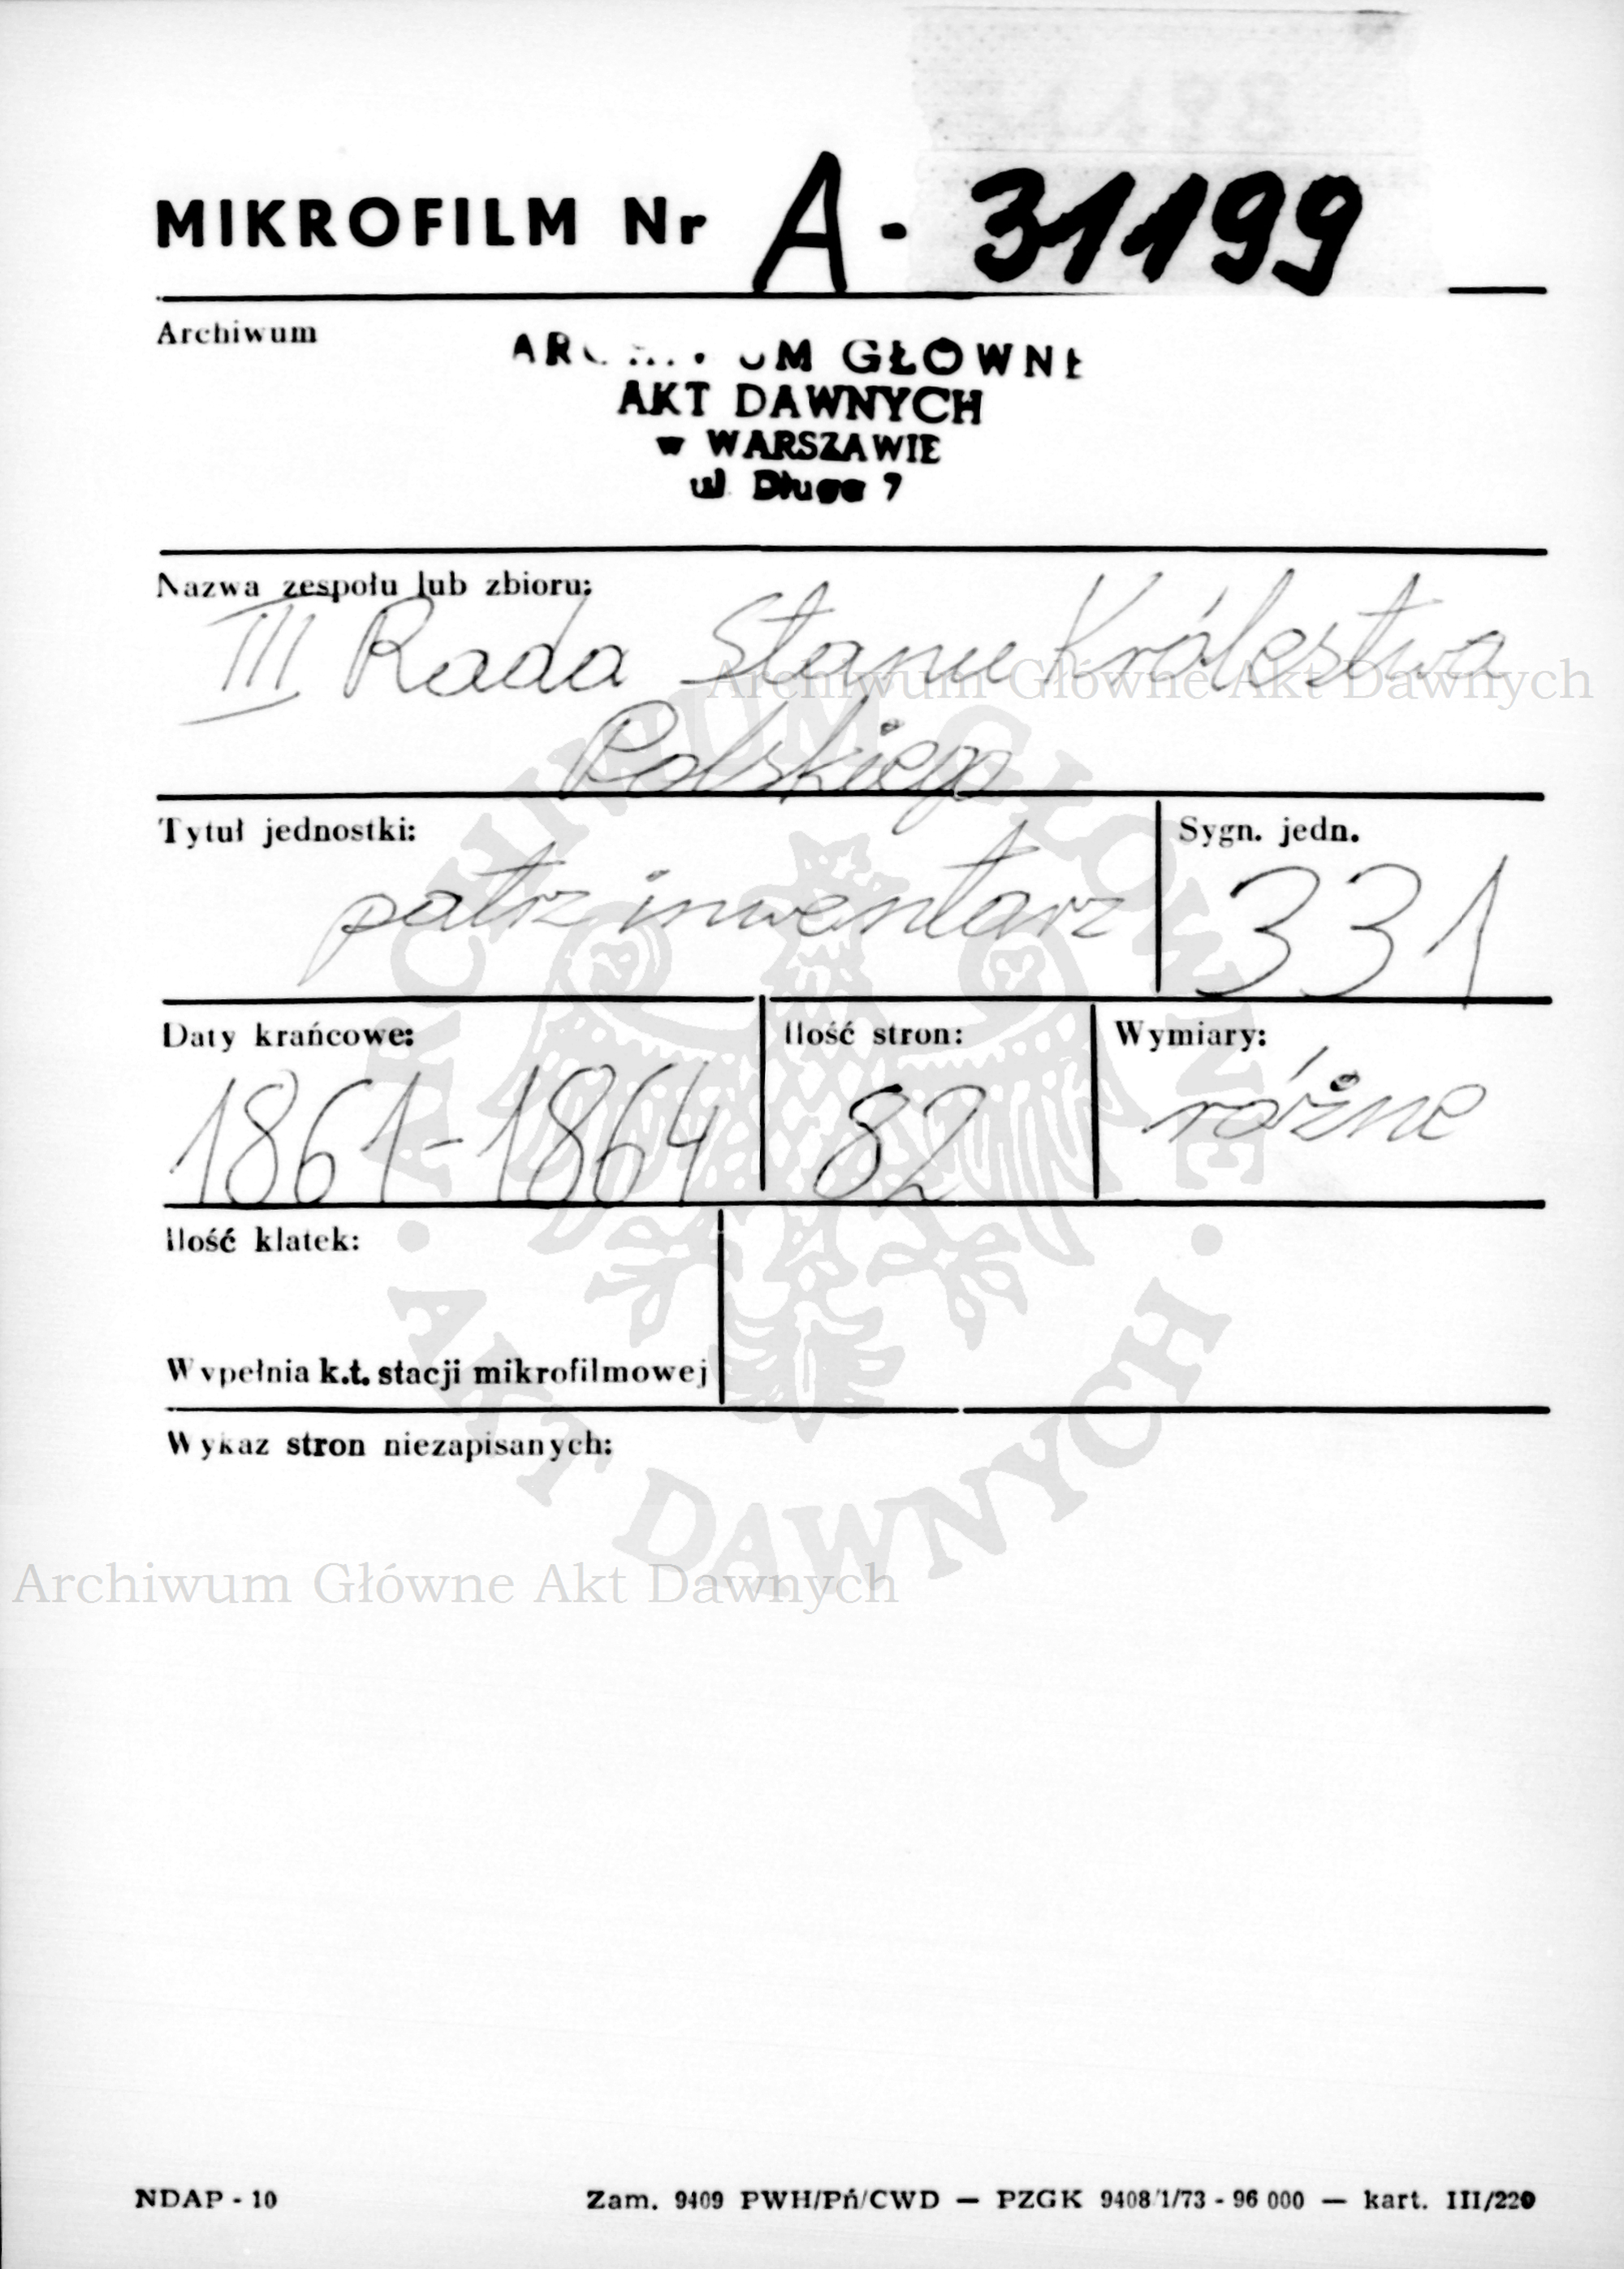 MIKROFILM Nr A - 31199
Archiwum
GŁÓWNE
AKT DAWNYCH
w WARSZAWIE
ul Długa 7
Nazwa zespołu lub zbioru:
III Rada Stanu Królestwa
Archiwum Główne Akt Dawnych
Polskiego
Tytuł jednostki:
Sygn. jedn.
patrz inwentarz
331
Daty krańcowe:
Ilość stron:
Wymiary:
1861-1864
82
różne
Ilość klatek:
Wypełnia k.t. stacji mikrofilmowej
Wykaz stron niezapisanych:
ARCHIWUM GŁÓWNE · AKT DAWNYCH ·
Archiwum Główne Akt Dawnych
NDAP - 10
Zam. 9409 PWH/Pń/CWD — PZGK 9408/1/73 - 96 000 — kart. III/220